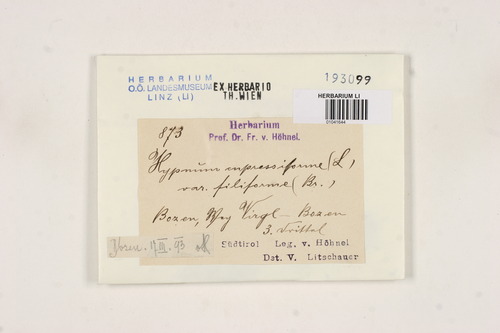 HERBARIUM
O.Ö. LANDESMUSEUM
LINZ (LI)
EX HERBARIO
TH. WIEN
193099
HERBARIUM LI
01041644
Herbarium
Prof. Dr. Fr. v. Höhnel.
873
Hypnum cupressiforme (L.)
var. filiforme (Br.)
Bozen, Weg Virgl - Bozen
3. Drittel
93
Südtirol Leg. v. Höhnel
Det. V. Litschauer